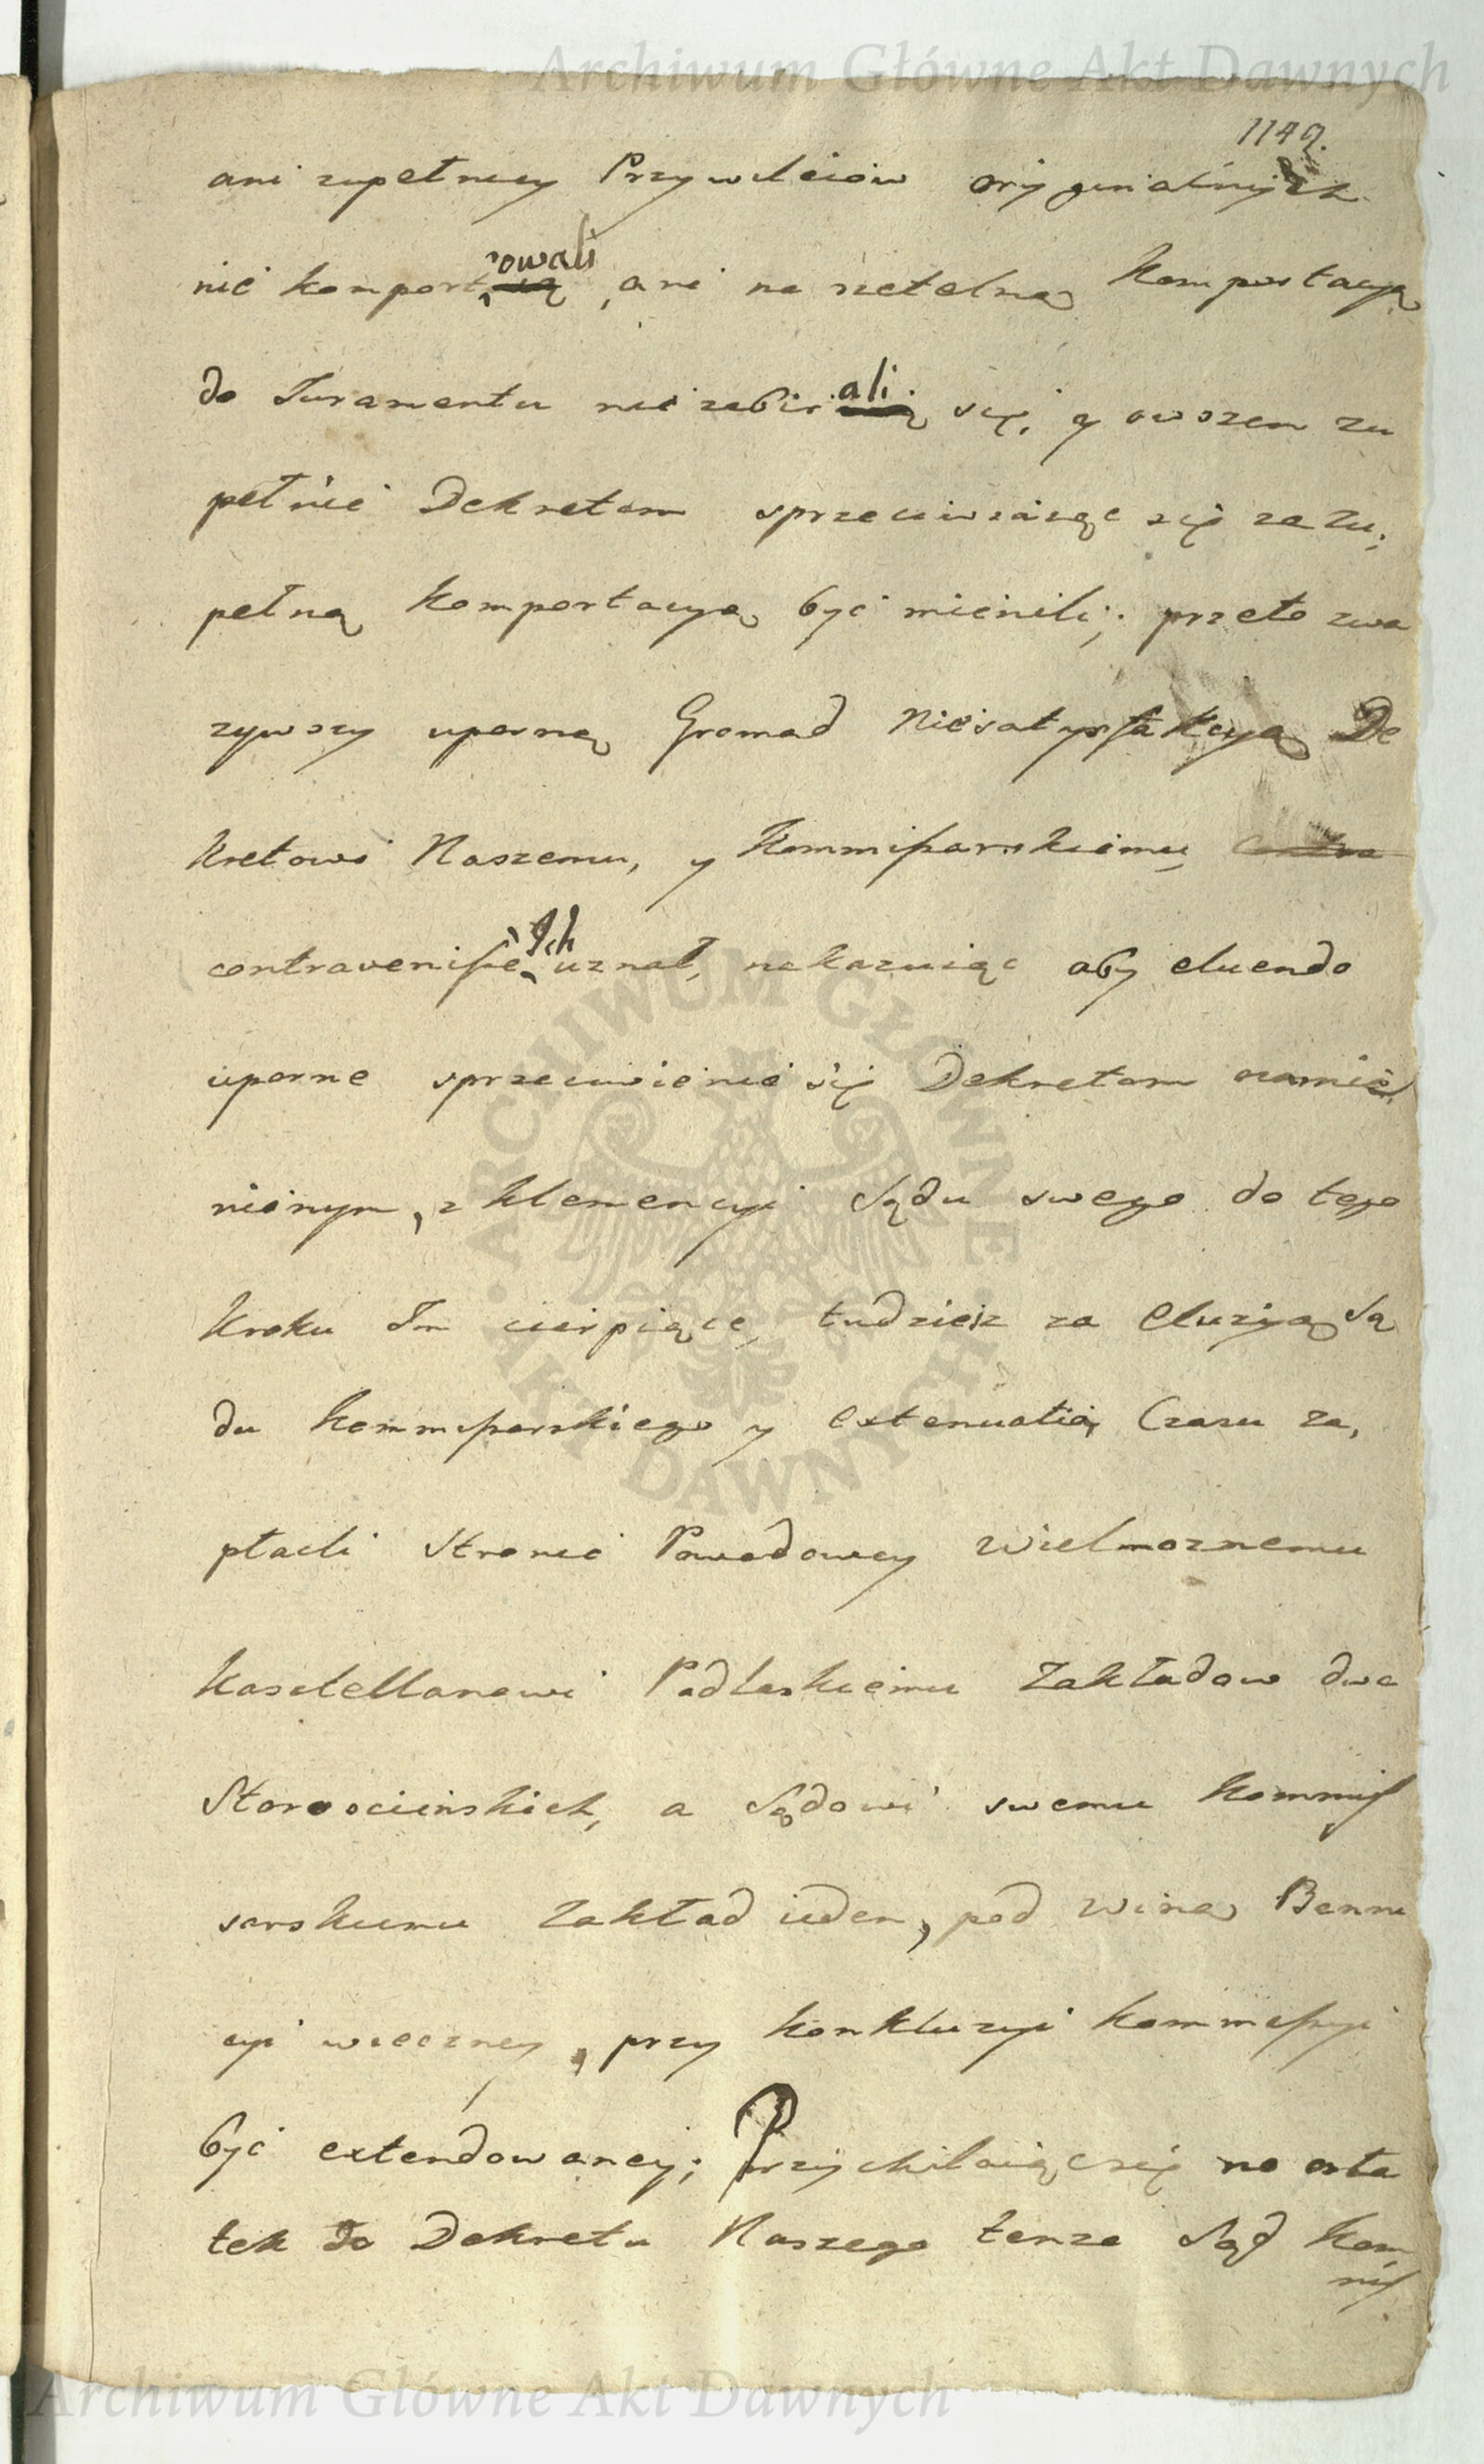 Archiwum Główne Akt Dawnych
1149.
ani zupełney Przywileiow oryginalnych
nie komportowali, ani na rzetelną komportacyą
do Juramentu nie zabirali się, y owszem zu
pełnie Dekretom sprzeciwiaiąc się za zu,
pełną komportacyą być mienili; przeto zwa
żywszy uporną Gromad Niesatysfakcyą De
kretowi Naszemu, y Kommissarskiemu, contra
contravenisse Ich uznał, nakazuiąc aby eluendo
uporne sprzeciwienie się Dekretom namie,
nionym, z klemencyi Sądu swego do tego
kroku Im cierpiące, tudziesz za eluzyą Są
du kommissarskiego y extenuatią Czasu za,
płacili Stronie Powodowey Wielmoznemu
Kasztellanowi Podlaskiemu Zakładow dwa
Staroscinskich, a Sądowi swemu kommis
sarskiemu Zakład ieden, pod winą Banni
cyi wieczney, przy konkluzyi kommissyi
być extendowaney; Przychilaiąc się na osta
tek do Dekretu Naszego tenże Sąd kom,
mis
ARCHIWUM GŁÓWNE AKT DAWNYCH
Archiwum Główne Akt Dawnych